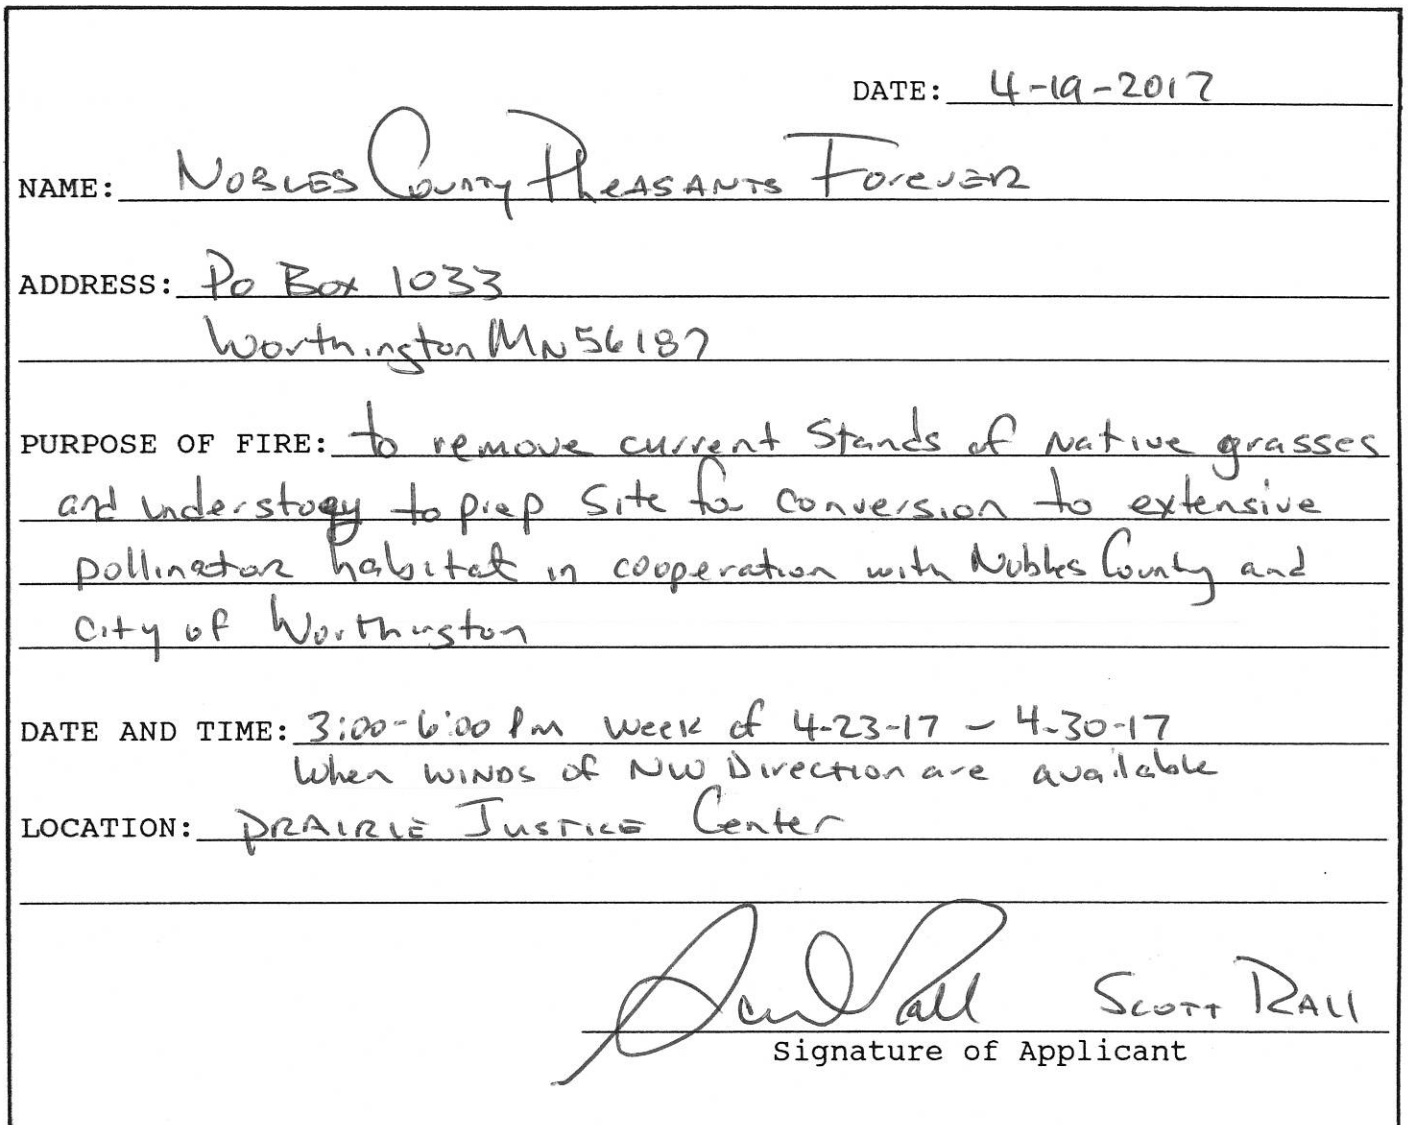 DATE: 4-19-2017
NAME: Nobles County Pheasants Forever
ADDRESS: Po Box 1033
Worthington MN 56187
PURPOSE OF FIRE: to remove current Stands of Native grasses
and understogy to prep Site for conversion to extensive
pollinator habitat in cooperation with Nobles County and
City of Worthington
DATE AND TIME: 3:00-6:00 Pm week of 4-23-17 - 4-30-17
When winds of NW Direction are available
LOCATION: Prairie Justice Center
Scott Rall Scott Rall
Signature of Applicant